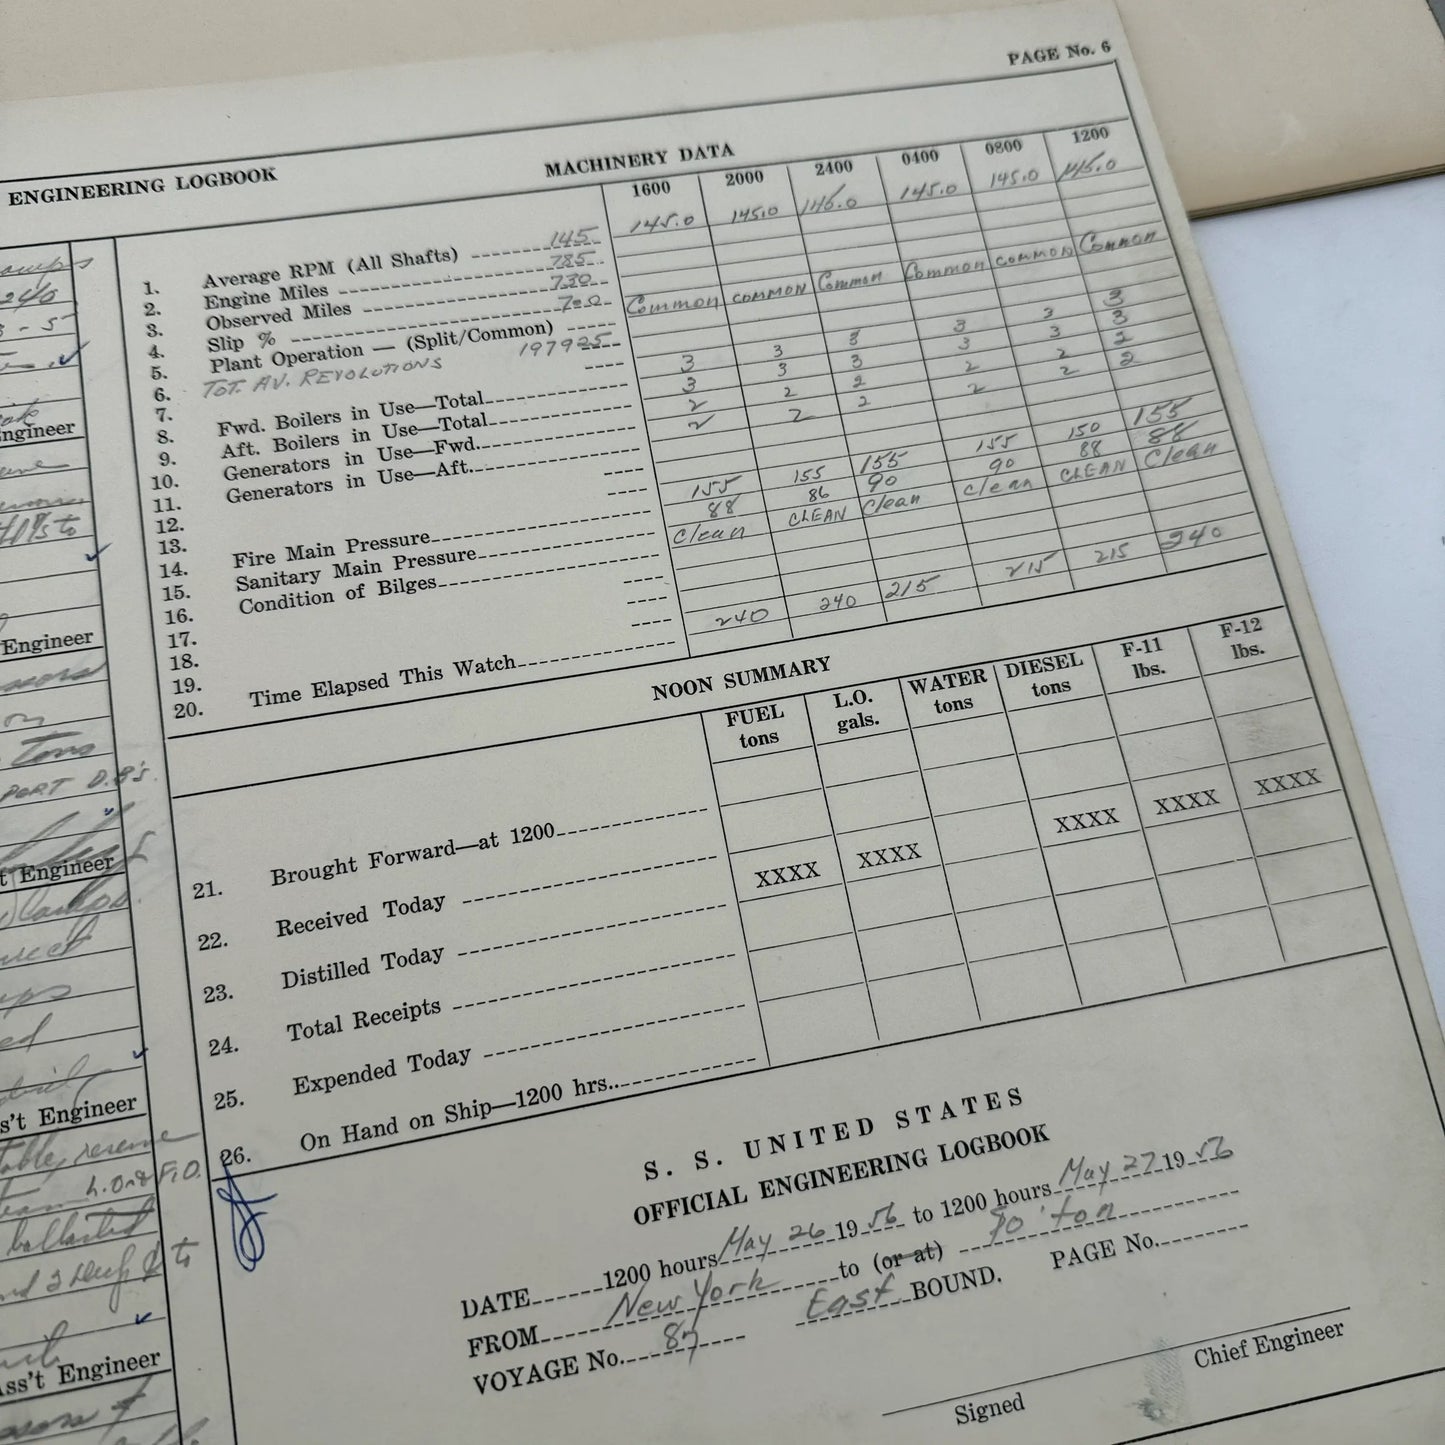 PAGE No. 6
ENGINEERING LOGBOOK
MACHINERY DATA
1600 2000 2400 0400 0800 1200
1. Average RPM (All Shafts) 145 145.0 145.0 145.0 145.0 145.0
2. Engine Miles 785
3. Observed Miles 730
4. Slip %
5. Plant Operation — (Split/Common) Common COMMON Common Common COMMON Common
6. TOT. AV. REVOLUTIONS 197925
7. Fwd. Boilers in Use—Total 3 3 3 3 3 3
8. Aft. Boilers in Use—Total 3 3 3 3 3 3
9. Generators in Use—Fwd. 2 2 2 2 2 2
10. Generators in Use—Aft. 2 2 2 2 2 2
11.
12.
13. Fire Main Pressure 155 155 155 155 150 155
14. Sanitary Main Pressure 88 86 90 90 88 88
15. Condition of Bilges Clean CLEAN Clean Clean CLEAN Clean
16.
17.
18.
19.
20. Time Elapsed This Watch 240 240 215 215 215 240
NOON SUMMARY
FUEL tons L.O. gals. WATER tons DIESEL tons F-11 lbs. F-12 lbs.
21. Brought Forward—at 1200
22. Received Today
23. Distilled Today XXXX XXXX XXXX XXXX XXXX
24. Total Receipts
25. Expended Today
26. On Hand on Ship—1200 hrs.
S. S. UNITED STATES
OFFICIAL ENGINEERING LOGBOOK
DATE 1200 hours May 26 1956 to 1200 hours May 27 1956
FROM New York to (or at) So'ton
VOYAGE No. 87 East BOUND. PAGE No.
Signed Chief Engineer
240
ngineer
Engineer
tons
PORT D.B's.
t Engineer
s't Engineer
L. O and F.O.
ballasted
Ass't Engineer